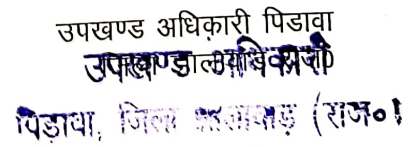 उपखण्ड अधिक़ारी पिडावा
उपखण्ड
पिड़ावा, जिला झालावाड़ (राज०)